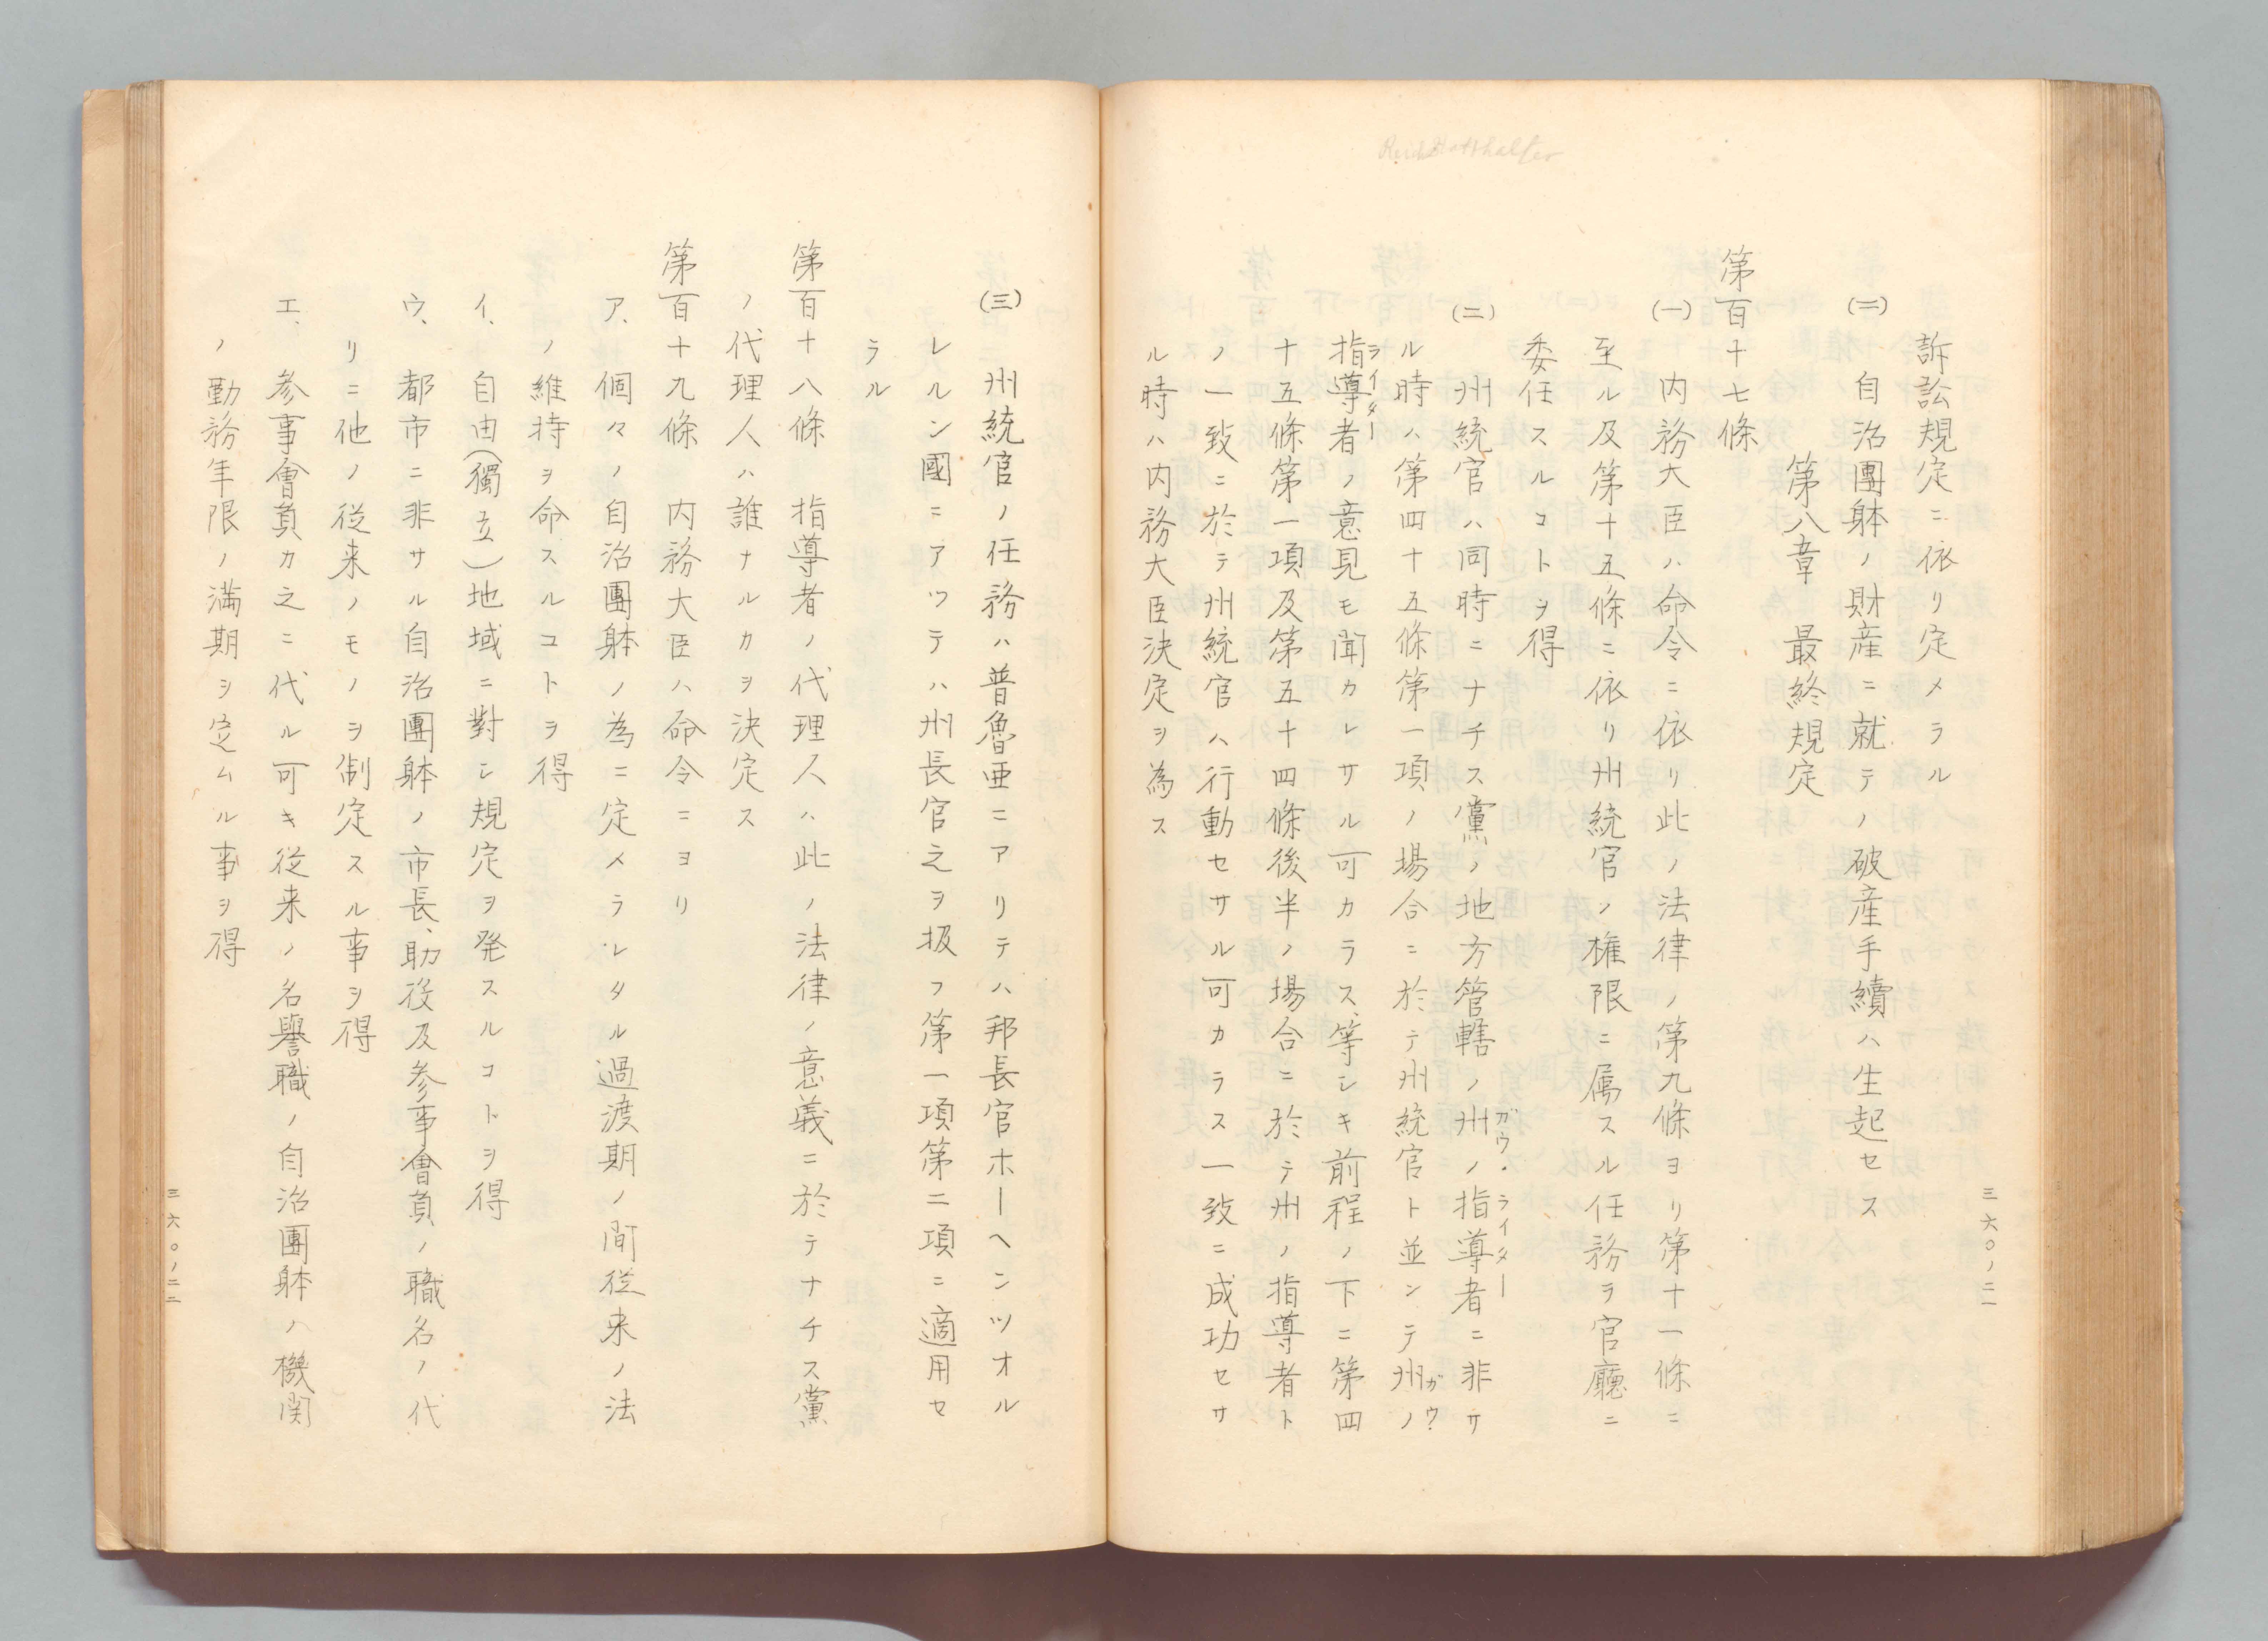 Reichsstatthalter
訴訟規定ニ依リ定メラル
(二) 自治團躰ノ財産ニ就テノ破産手續ハ生起セス
第八章 最終規定
第百十七條
(一) 内務大臣ハ命令ニ依リ此ノ法律ノ第九條ヨリ第十一條ニ
至ル及第十五條ニ依リ州統官ノ権限ニ属スル任務ヲ官廳ニ
委任スルコトヲ得
(二) 州統官ハ同時ニナチス黨ノ地方管轄ノ州ノ指導者ニ非サ
ガウ・ライター
ル時ハ第四十五條第一項ノ場合ニ於テ州統官ト並ンテ州ノ
ガウ?
指導者ノ意見モ聞カレサル可カラス、等シキ前程ノ下ニ第四
ライター
十五條第一項及第五十四條後半ノ場合ニ於テ州ノ指導者ト
ノ一致ニ於テ州統官ハ行動セサル可カラス一致ニ成功セサ
ル時ハ内務大臣決定ヲ為ス
三六〇ノ二一
(三) 州統官ノ任務ハ普魯亜ニアリテハ邦長官ホーヘンツオル
レルン國ニアツテハ州長官之ヲ扱フ第一項第二項ニ適用セ
ラル
第百十八條 指導者ノ代理人ハ此ノ法律ノ意義ニ於テナチス黨
ノ代理人ハ誰ナルカヲ決定ス
第百十九條 内務大臣ハ命令ニヨリ
ア、個々ノ自治團躰ノ為ニ定メラレタル過渡期ノ間従来ノ法
ノ維持ヲ命スルコトヲ得
イ、自由(獨立)地域ニ對シ規定ヲ発スルコトヲ得
ウ、都市ニ非サル自治團躰ノ市長、助役及参事會員ノ職名ノ代
リニ他ノ従来ノモノヲ制定スル事ヲ得
エ、参事會員カ之ニ代ル可キ従来ノ名譽職ノ自治團躰ハ機関
ノ勤務年限ノ満期ヲ定ムル事ヲ得
三六〇ノ二二